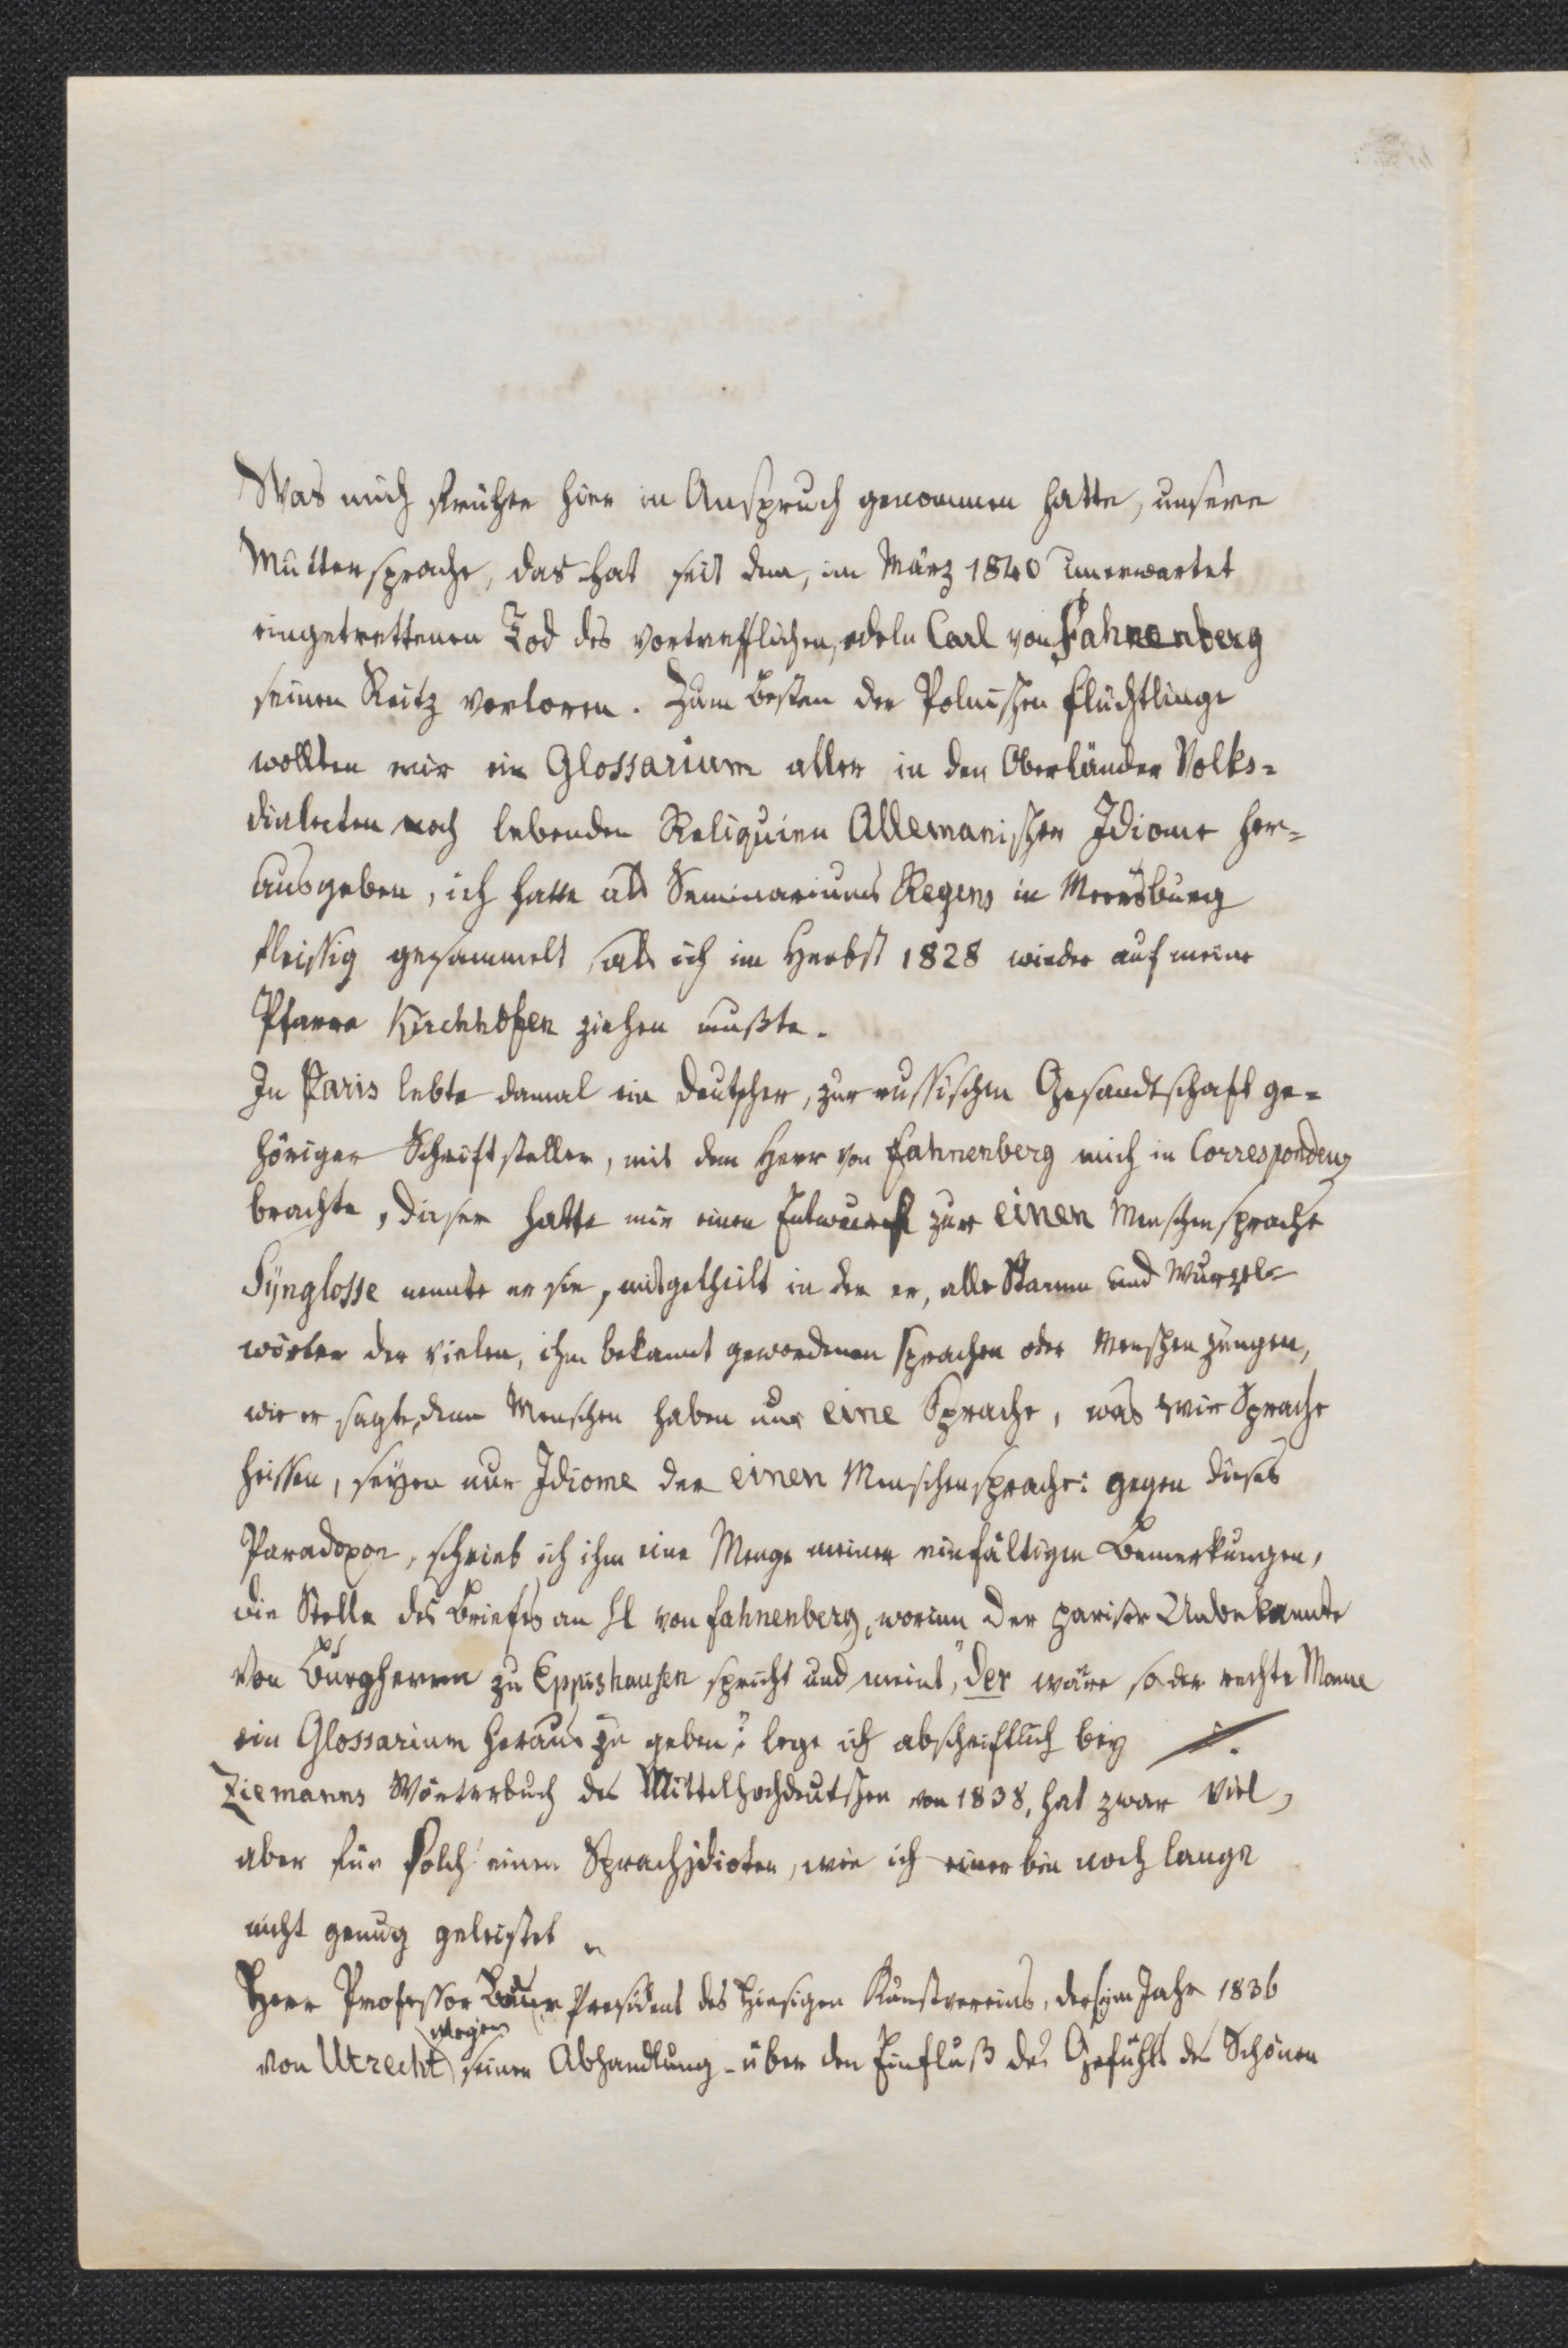 Was mich früher hier in Anspruch genommen hatte, unsere
Muttersprache, das hat seit dem, im März 1840 unerwartet
eingetrettenen Tod des vortrefflichen, edeln Carl von Fahnenberg
seinen Reitz verloren. Zum Besten der Polnischen Flüchtlinge
wollten wir ein Glossarium aller in den Oberländer Volks=
dialecten noch lebenden Reliquien Allemanischer Idiome her=
ausgeben, ich hatte als Seminariums Regens in Meersburg
fleissig gesammelt, als ich im Herbst 1828 wieder auf meine
Pfarre Kirchhofen ziehen mußte.
In Paris lebte damal ein Deutscher, zur russischen Gesandtschaft ge=
höriger Schriftsteller, mit dem Herr von Fahnenberg mich in Correspondenz
brachte, dieser hatte mir einen Entwurf zur einen Menschensprache
Sÿnglosse nennte er sie, mitgetheilt in der er, alle Stamm und Wurzel=
wörter der vielen, ihm bekannt gewordenen Sprachen oder Menschenzungen,
wie er sagte, denn Menschen haben nur eine Sprache, was wir Sprache
heissen, seÿen nur Idiome der einen Menschensprache: gegen dieses
Paradoxon, schrieb ich ihm eine Menge meiner einfältigen Bemerkungen,
die Stelle des Briefes an H von Fahnenberg, worinn der pariser Unbekannte
von Burgherren zu Eppishausen spricht und meint, "der wäre so der rechte Mann
ein Glossarium heraus zu geben", lege ich abschriftlich bey ./.
Ziemanns Wörterbuch des Mittelhochdeutschen von 1838, hat zwar viel,
aber für solch einen Sprachidioten, wie ich einer bin noch lange
nicht genug geleistet.
Herr Professor Bauer President des hiesigen Kunstvereins, der im Jahr 1836
wegen
von Utrecht seiner Abhandlung - über den Einfluß des Gefühls des Schönen